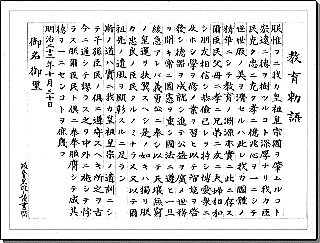 教育勅語
朕惟フニ我カ皇祖皇宗國ヲ肇ムルコト
宏遠ニ德ヲ樹ツルコト深厚ナリ我カ臣
民克ク忠ニ克ク孝ニ億兆心ヲ一ニシテ
世世厥ノ美ヲ濟セルハ此レ我カ國體ノ
精華ニシテ教育ノ淵源亦實ニ此ニ存ス
爾臣民父母ニ孝ニ兄弟ニ友ニ夫婦相和
シ朋友相信シ恭儉己レヲ持シ博愛衆ニ
及ホシ學ヲ修メ業ヲ習ヒ以テ智能ヲ啓
發シ德器ヲ成就シ進テ公益ヲ廣メ世務
ヲ開キ常ニ國憲ヲ重シ國法ニ遵ヒ一旦
緩急アレハ義勇公ニ奉シ以テ天壤無窮
ノ皇運ヲ扶翼スヘシ是ノ如キハ獨リ朕
カ忠良ノ臣民タルノミナラス又以テ爾
祖先ノ遺風ヲ顯彰スルニ足ラン
斯ノ道ハ實ニ我カ皇祖皇宗ノ遺訓ニシ
テ子孫臣民ノ倶ニ遵守スヘキ所之ヲ古
今ニ通シテ謬ラス之ヲ中外ニ施シテ悖
ラス朕爾臣民ト倶ニ拳々服膺シテ咸其
德ヲ一ニセンコトヲ庶幾フ
明治二十三年十月三十日
御名御璽